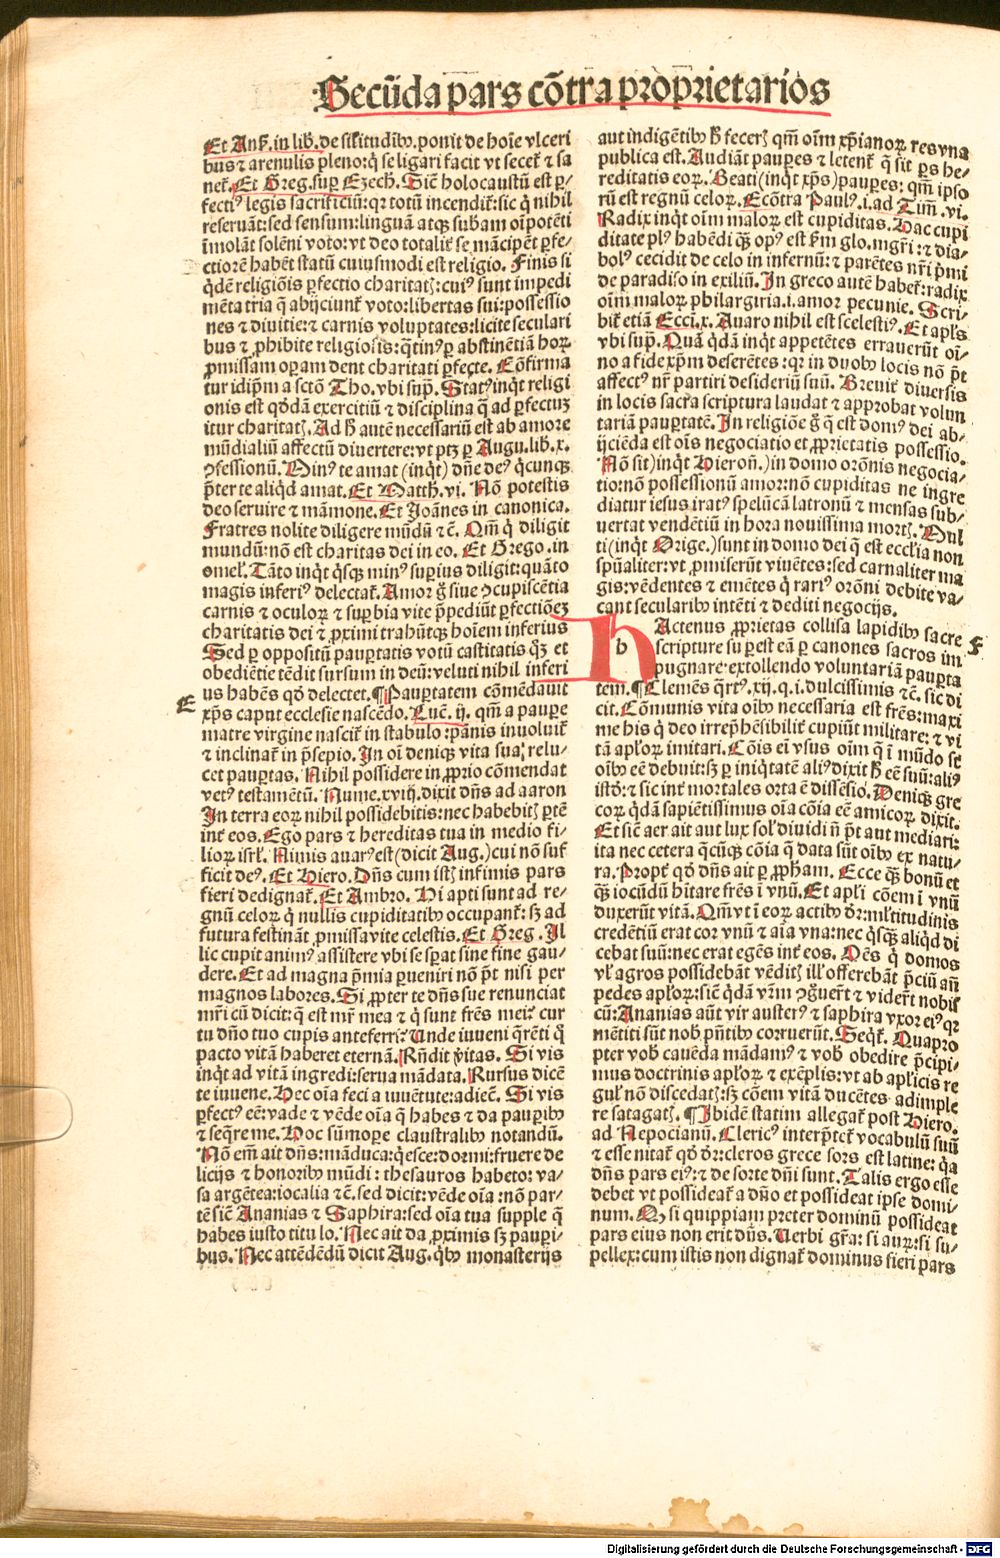 Secūda pars cōtra proprietarios
Et Anſ. in lib̄. de ſil̄itudib⁹. ponit de hoīe vlceri
bus ⁊ arenulis pleno: q̇ ſe ligari facit vt ſecet᷑ ⁊ ſa
net᷑. Et Greg. ſuꝑ Ezech. Sic̄ holocauſtū eſt ꝑ/
fecti⁹ legis ſacrificiū: qꝛ totū incendit᷑: ſic q̇ nihil
reſeruāt: ſed ſenſum: linguā atqꝫ ſubām oīpotēti
īmolāt ſolēni voto: vt deo totalit᷑ ſe mācipēt ꝑfe/
ctiorē habēt ſtatū cuiuſmodi eſt religio. Finis ſi
q̇dē religiōis ꝑfectio charitatꝭ: cui⁹ ſunt impedi
mēta tria q̄ abijciunt᷑ voto: libertas ſui: poſſeſſio
nes ⁊ diuitie: ⁊ carnis voluptates: licite ſeculari
bus ⁊ ꝓhibite religioſis: q̄tin⁹ ꝑ abſtinētiā hoꝝ
ꝓmiſſam oꝑam dent charitati ꝑfecte. Cōfirma
tur idip̄m a ſctō Tho. vbi ſup̄. Stat⁹ inq̇t religi
onis eſt qd̄dā exercitiū ⁊ diſciplina q̄ ad ꝑfectuꝫ
itur charitatꝭ. Ad h̄ autē neceſſariū eſt ab amore
mūdialiū affectū diuertere: vt ptꝫ ꝑ Augu. lib. x.
ꝯfeſſionū. Min⁹ te amat (inq̇t) dn̄e de⁹ q̇cunqꝫ
p̄ter te aliq̇d amat. Et Matth. vi. Nō poteſtis
deo ſeruire ⁊ māmone. Et Joānes in canonica.
Fratres nolite diligere mūdū ⁊ c̄. Qm̄ q̇ diligit
mundū: nō eſt charitas dei in eo. Et Grego. in
omel᷑. Tāto inq̇t q̇ſqꝫ min⁹ ſuꝑius diligit: quāto
magis inferi⁹ delectat᷑. Amor g̊ ſiue ꝯcupiſcētia
carnis ⁊ oculoꝝ ⁊ ſuꝑbia vite p̄pediūt ꝑfectiōeꝫ
charitatis dei ⁊ ꝓximi trahūtqꝫ hoīem inferius
Sed ꝑ oppoſitū pauꝑtatis votū caſtitatis q̄ꝫ et
obediētie tēdit ſurſum in deū: veluti nihil inferi
E
us habēs qd̄ delectet. ¶ Pauꝑtatem cōmēdauit
xp̄s caput eccleſie naſcēdo. Luc̄. ij. qm̄ a pauꝑe
matre virgine naſcit᷑ in ſtabulo: pānis inuoluit᷑
⁊ inclinat᷑ in p̄ſepio. In oī deniqꝫ vita ſua, relu/
cet pauꝑtas. Nihil poſſidere in ꝓprio cōmendat
vet⁹ teſtamētū. Nume. xviij. dixit dn̄s ad aaron
In terra eoꝝ nihil poſſidebitis: nec habebitꝭ ꝑtē
int᷑ eos. Ego pars ⁊ hereditas tua in medio fi/
lioꝝ iſrl᷑. Nimis auar⁹ eſt (dicit Aug.) cui nō ſuf
ficit de⁹. Et Hiero. Dn̄s cum iſtꝭ infimis pars
fieri dedignat᷑. Et Ambro. Hi apti ſunt ad re/
gnū celoꝝ q̇ nullis cupiditatib⁹ occupant᷑: ſꝫ ad
futura feſtināt ꝓmiſſa vite celeſtis. Et Greg. Il
lic cupit anim⁹ aſſiſtere vbi ſe ſꝑat ſine fine gau/
dere. Et ad magna p̄mia ꝑueniri nō p̄t niſi per
magnos labores. Si ꝓpter te dn̄s ſue renunciat
mr̄i cū dicit: q̄ eſt mr̄ mea ⁊ q̇ ſunt frēs mei: cur
tu dn̄o tuo cupis anteferri? Unde iuueni q̄rēti q̊
pacto vitā haberet eternā. Rn̄dit v̄itas. Si vis
inq̇t ad vitā ingredi: ſerua mādata. Rurſus dicē
te iuuene. Hec oīa feci a iuuētute: adiec̄. Si vis
ꝑfect⁹ eē: vade ⁊ vēde oīa q̄ habes ⁊ da pauꝑib⁹
⁊ ſeq̄re me. Hoc ſūmope clauſtralib⁹ notandū.
Nō em̄ ait dn̄s: māduca: q̇eſce: dormi: fruere de
licijs ⁊ honorib⁹ mūdi: theſauros habeto: va/
ſa argētea: iocalia ⁊c̄. ſed dicit: vēde oīa: nō par/
tē ſic̄ Ananias ⁊ Saphira: ſed oīa tua ſupple q̄
habes iuſto titulo. Nec ait da ꝓximis ſꝫ pauꝑi/
bus. Nec attēdēdū dicit Aug. q̇b⁹ monaſterijs
aut indigētib⁹ h̄ fecerꝭ qm̄ oīm xp̄ianoꝝ res vna
publica eſt. Audiāt pauꝑes ⁊ letent᷑ q̄ ſit ꝑs he/
reditatis eoꝝ. Beati (inq̇t xp̄s) pauꝑes: qm̄ ipſo
rū eſt regnū celoꝝ. Ecōtra Paul⁹. i. ad Tim̄. vi.
Radix inq̇t oīm maloꝝ eſt cupiditas. Hac cupi
ditate pl⁹ habēdi q̄ꝫ op⁹ eſt ẜm glo. mgr̄i: ⁊ dia/
bol⁹ cecidit de celo in infernū: ⁊ parētes nr̄i p̄mi
de paradiſo in exiliū. In greco autē habet᷑: radix
oīm maloꝝ philargiria. i. amor pecunie. Scri/
bit᷑ etiā Ecci. x. Auaro nihil eſt ſceleſti⁹. Et apl̄s
vbi ſup̄. Quā q̇dā inq̇t appetētes errauerūt oī/
no a fide xp̄m deſerētes: qꝛ in duob⁹ locis nō p̄t
affect⁹ nr̄ partiri deſideriū ſuū. Breuit᷑ diuerſis
in locis ſacra ſcriptura laudat ⁊ approbat volun
tariā pauꝑtatē. In religiōe g̊ q̄ eſt dom⁹ dei ab/
ijciēda eſt oīs negociatio et ꝓprietatis poſſeſſio.
Nō ſit) inq̇t Hieron̄.) in domo orōnis negocia/
tio: nō poſſeſſionū amor: nō cupiditas ne ingre
diatur ieſus irat⁹ ſpelūcā latronū ⁊ menſas ſub/
uertat vendētiū in hora nouiſſima mortꝭ. Mul
ti (inq̇t Orige.) ſunt in domo dei q̄ eſt eccl̄ia non
ſpūaliter: vt ꝓmiſerūt viuētes: ſed carnaliter ma
gis: vēdentes ⁊ emētes q̇ rari⁹ orōni debite va/
cant ſecularib⁹ intēti ⁊ dediti negocijs.
F
h Actenus ꝓprietas colliſa lapidib⁹ ſacre
ſcripture ſuꝑeſt eā ꝑ canones ſacros im
pugnare extollendo voluntariā pauꝑta
tem. ¶ Clemēs q̄rt⁹. xij. q. i. dulciſſimis ⁊c̄. ſic di
cit. Cōmunis vita oib⁹ neceſſaria eſt frēs: maxi
me his q̇ deo irrep̄hēſibilit᷑ cupiūt militare: ⁊ vi
tā apl̄oꝝ imitari. Cōis eī vſus oīm q̄ ī mūdo ſt̄
oīb⁹ eē debuit: ſꝫ ꝑ iniq̇tatē ali⁹ dixit h̄ eē ſuū: ali⁹
iſtd̄: ⁊ ſic int᷑ mortales orta ē diſſēſio. Deniqꝫ gre
coꝝ q̇dā ſapiētiſſimus oīa cōia eē amicoꝝ dixit.
Et ſic̄ aer ait aut lux ſol᷑ diuidi n̄ p̄t aut mediari:
ita nec cetera q̄cūqꝫ cōia q̄ data ſūt oīb⁹ ex natu/
ra. Propt᷑ qd̄ dn̄s ait ꝑ ꝓpham. Ecce q̄ꝫ bonū et
q̄ꝫ iocūdū hītare frēs ī vnū. Et apl̄i cōem ī vnū
duxerūt vitā. Qm̄ vt ī eoꝝ actib⁹ dr̄: ml̄titudinis
credētiū erat cor vnū ⁊ aīa vna: nec q̇ſqꝫ aliq̇d di
cebat ſuū: nec erat egēs int᷑ eos. Oēs q̇ domos
vl᷑ agros poſſidebāt vēditꝭ ill᷑ offerebāt p̄ciū añ
pedes apl̄oꝝ: ſic̄ q̇dā vr̄m ꝯgꝰer̄t ⁊ vider̄t nobiſ
cū: Ananias aūt vir auſter⁹ ⁊ ſaphira vxor ei⁹ qꝛ
mētiti ſūt nob̄ pn̄tib⁹ corruerūt. Seq̇t᷑. Quapro
pter vob̄ cauēda mādam⁹ ⁊ vob̄ obedire p̄cipi/
mus doctrinis apl̄oꝝ ⁊ exēplis: vt ab apl̄icis re
gul᷑ nō diſcedatꝭ: ſꝫ cōem vitā ducētes adimple
re ſatagatꝭ. ¶ Ibidē ſtatim allegat᷑ poſt Hiero.
ad Nepocianū. Cleric⁹ interp̄tet᷑ vocabulū ſuū
⁊ eſſe nitat᷑ qd̄ dr̄: cleros grece ſors eſt latine: q̇a
dn̄s pars ei⁹: ⁊ de ſorte dn̄i ſunt. Talis ergo eſſe
debet vt poſſideat᷑ a dn̄o et poſſideat ipſe domi/
num. Qꝫ ſi quippiam preter dominū poſſideat
pars eius non erit dn̄s. Uerbi gr̄a: ſi auꝝ: ſi ſu/
pellex: cum iſtis non dignat᷑ dominus fieri pars
Digitalisierung gefördert durch die Deutsche Forschungsgemeinschaft - DFG